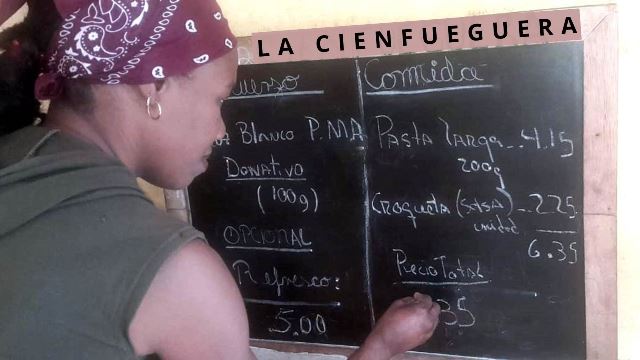 LA CIENFUEGUERA
uerzo
Blanco P.MA
Donativo
(100g)
OPCIONAL
Refresco:
5.00
Comida
Pasta larga..4.15
200g
Croqueta 2.25
unidad
6.35
Precio Total
35